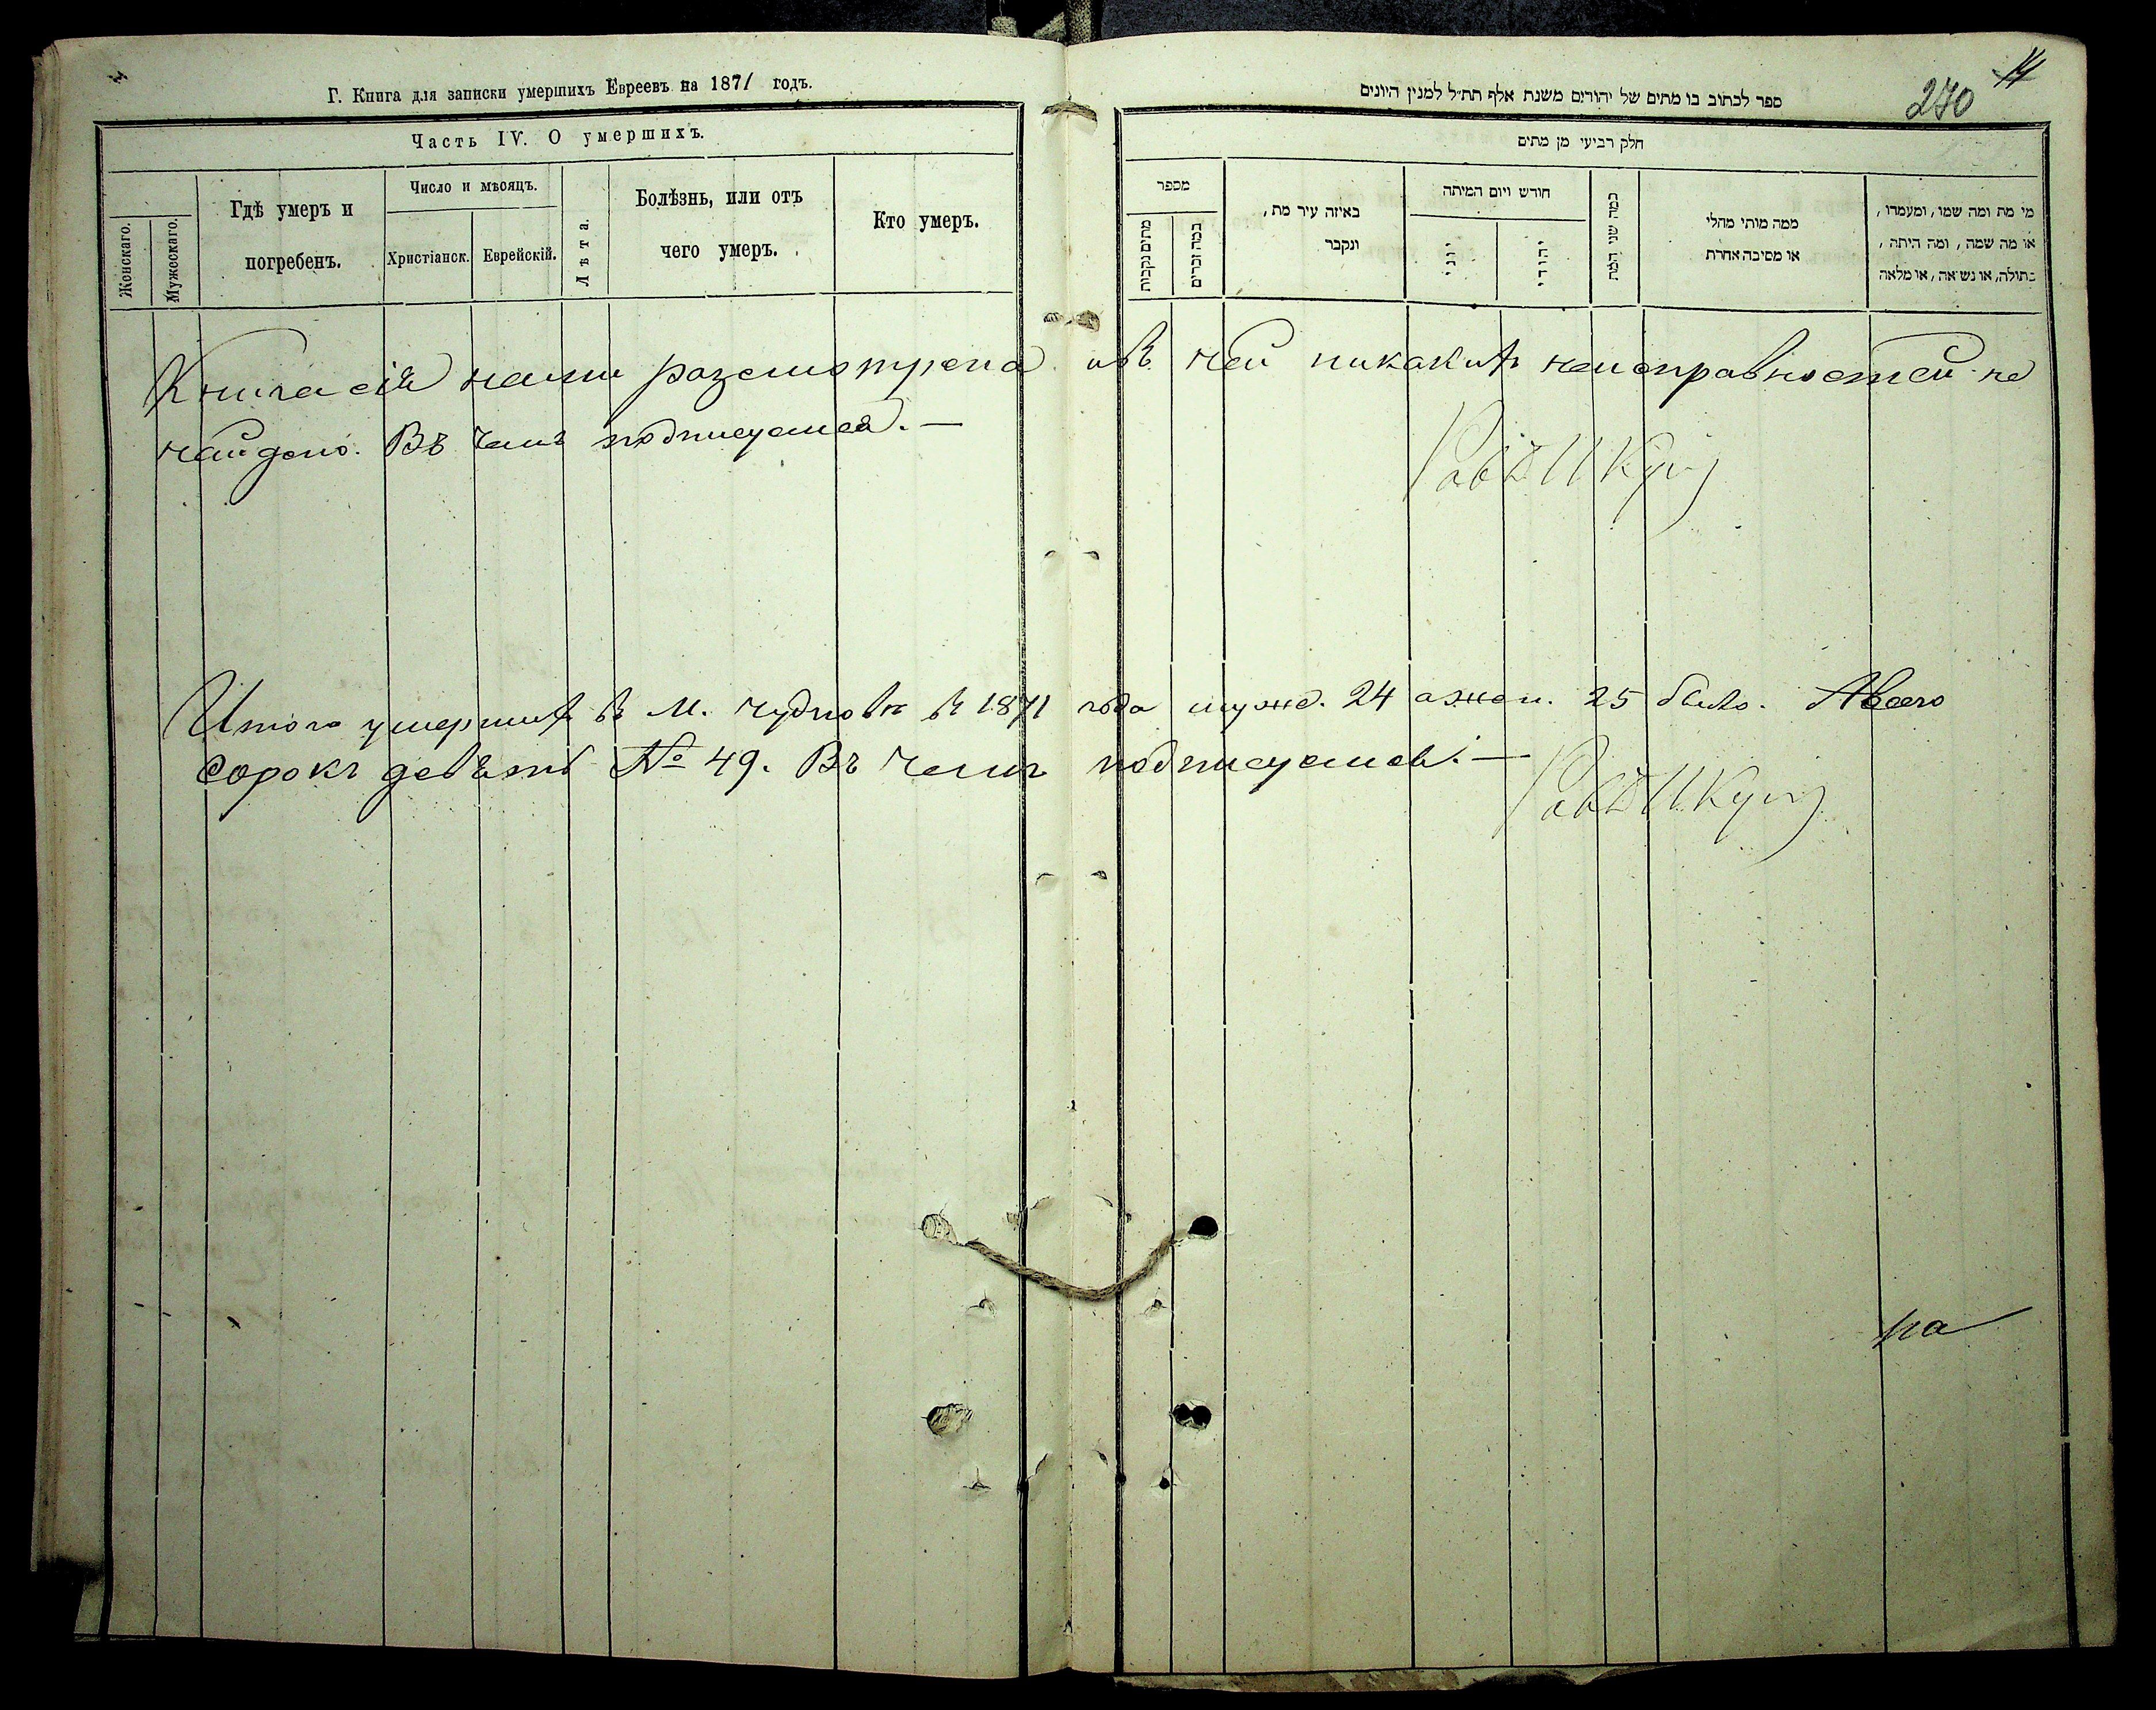 Г. Книга для записки умершихъ Евреевъ на 1871 годъ.
Часть IV. О умершихъ.
Женскаго.
Мужескаго.
Гдѣ умеръ и
погребенъ.
Число и мѣсяцъ.
Христіанск.
Еврейскій.
Лѣта.
Болѣзнь, или отъ
чего умеръ.
Кто умеръ.
ספר לכתוב בו מתים של יהודים משנת אלף תת״ל למנין היונים
270
14
חלק רביעי מן מתים
מספר
מתים נקבות
כמה זכרים
באיזה עיר מת,
ונקבר
חודש ויום המיתה
יוני
יהודי
כמה שני המת
ממה מותי מחלי
או מסיבה אחרת
מי מת ומה שמו, ומעמדו,
או מה שמה, ומה היתה,
בתולה, או נשואה, או מלאה
Книга сія нами разсмотрена и въ ней никакихъ неисправностей не
найдено. Въ чемъ подписуемся. —
Итого умершихъ въ М. Чудновѣ въ 1871 года муже. 24 а жен. 25 было. А всего
Сорокъ девѣть № 49. Въ чемъ подписуемся. —
на